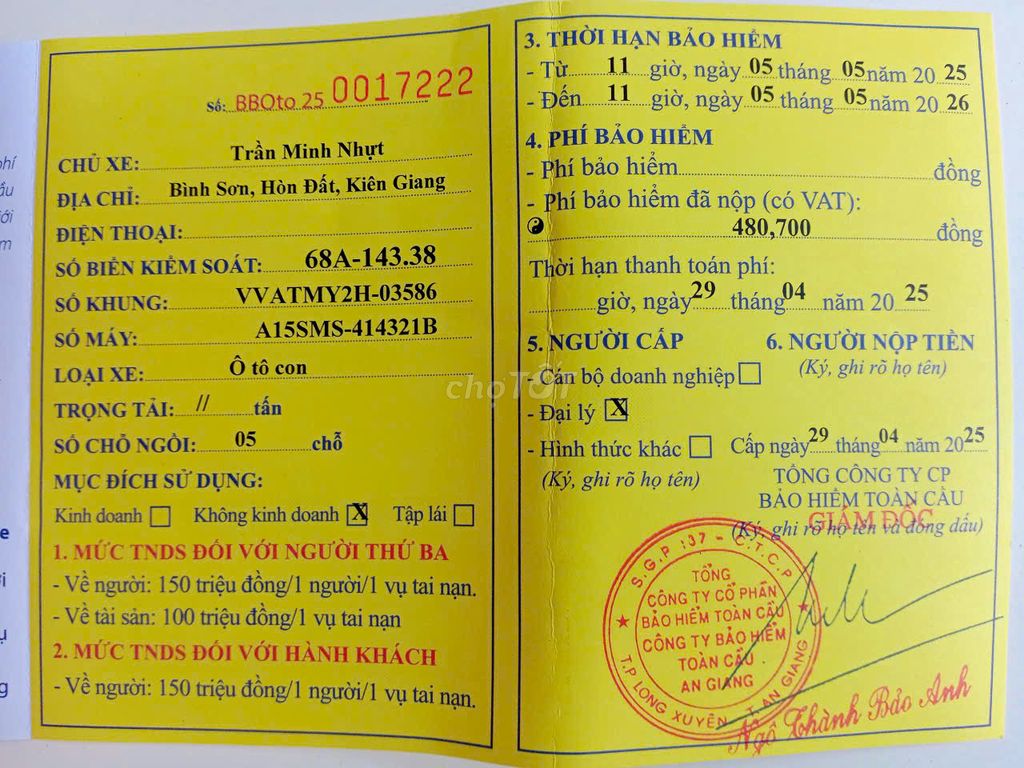 Số: BBOto 25 0017222
CHỦ XE: Trần Minh Nhựt
ĐỊA CHỈ: Bình Sơn, Hòn Đất, Kiên Giang
ĐIỆN THOẠI:
SỐ BIỂN KIỂM SOÁT: 68A-143.38
SỐ KHUNG: VVATMY2H-03586
SỐ MÁY: A15SMS-414321B
LOẠI XE: Ô tô con
TRỌNG TẢI: // tấn
SỐ CHỖ NGỒI: 05 chỗ
MỤC ĐÍCH SỬ DỤNG:
Kinh doanh Không kinh doanh X Tập lái
1. MỨC TNDS ĐỐI VỚI NGƯỜI THỨ BA
- Về người: 150 triệu đồng/1 người/1 vụ tai nạn.
- Về tài sản: 100 triệu đồng/1 vụ tai nạn
2. MỨC TNDS ĐỐI VỚI HÀNH KHÁCH
- Về người: 150 triệu đồng/1 người/1 vụ tai nạn.
3. THỜI HẠN BẢO HIỂM
- Từ 11 giờ, ngày 05 tháng 05 năm 20 25
- Đến 11 giờ, ngày 05 tháng 05 năm 20 26
4. PHÍ BẢO HIỂM
- Phí bảo hiểm đồng
- Phí bảo hiểm đã nộp (có VAT):
480,700 đồng
Thời hạn thanh toán phí:
giờ, ngày 29 tháng 04 năm 20 25
5. NGƯỜI CẤP 6. NGƯỜI NỘP TIỀN
(Ký, ghi rõ họ tên)
- Cán bộ doanh nghiệp
- Đại lý X
- Hình thức khác Cấp ngày 29 tháng 04 năm 2025
(Ký, ghi rõ họ tên) TỔNG CÔNG TY CP
BẢO HIỂM TOÀN CẦU
GIÁM ĐỐC
(Ký, ghi rõ họ tên và đóng dấu)
S.G.P : 137 - C.T.C.P
TỔNG
CÔNG TY CỔ PHẦN
BẢO HIỂM TOÀN CẦU
CÔNG TY BẢO HIỂM
TOÀN CẦU
AN GIANG
T.P LONG XUYÊN - T. AN GIANG
Ngô Thành Bảo Anh
chợTỐT